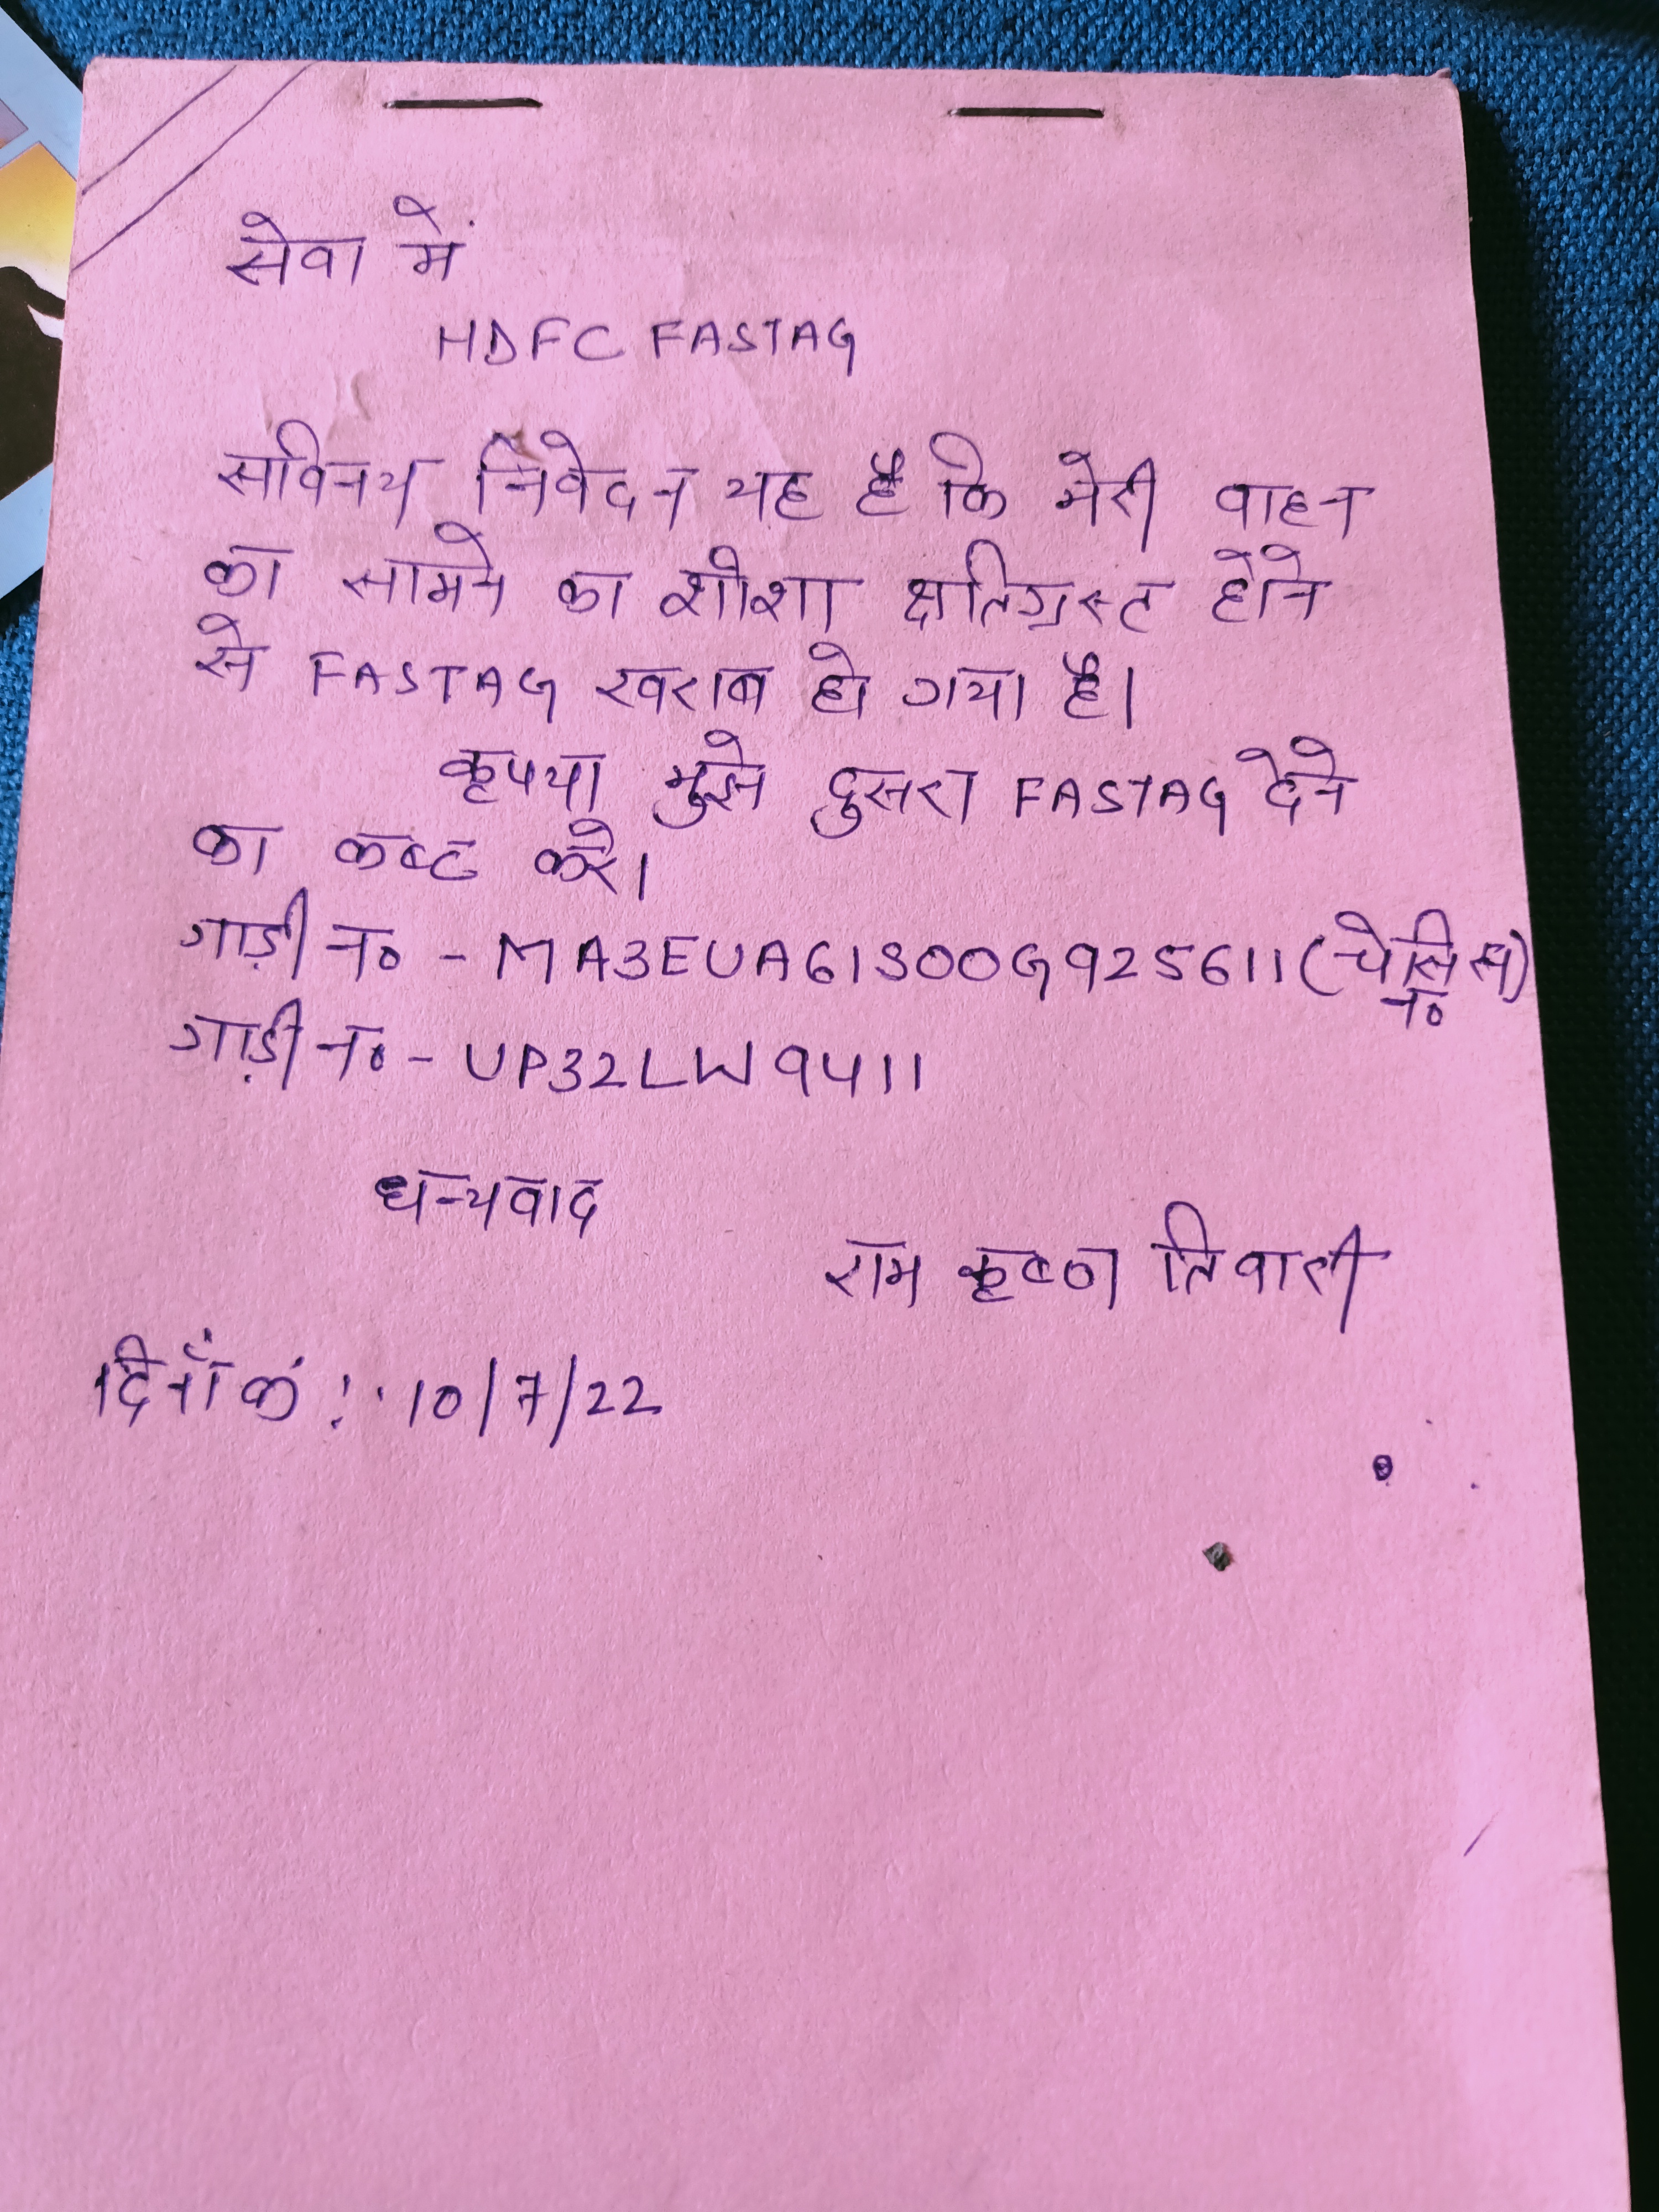 सेवा में
HDFC FASTAG
सविनय निवेदन यह है कि मेरी वाहन
का सामने का शीशा क्षतिग्रस्त होने
से FASTAG खराब हो गया है।
कृपया मुझे दुसरा FASTAG देने
का कष्ट करे।
गाड़ी न० - MA3EUA61S00G925611 (चेसिस
न०)
गाड़ी न० - UP32LW9411
धन्यवाद
राम कृष्ण तिवारी
दिनाँकं :- 10/7/22